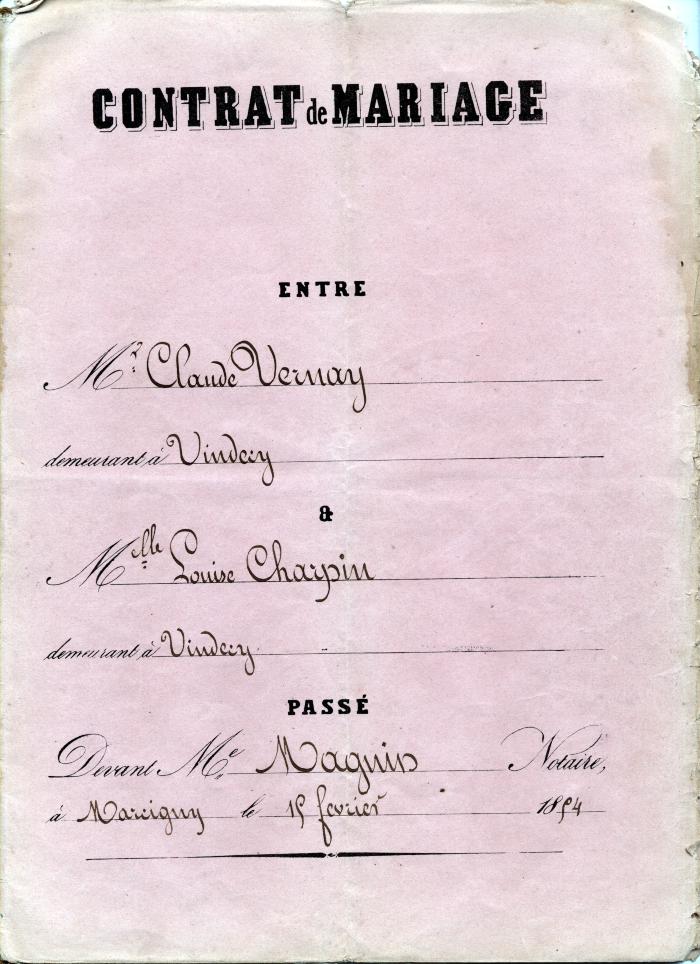 CONTRAT de MARIAGE
ENTRE
Mr. Claude Vernay
demeurant à Vindecy
&
Melle Louise Charpin
demeurant à Vindecy
PASSÉ
Devant Me Maguin Notaire,
à Marcigny le 15 fevrier 1854